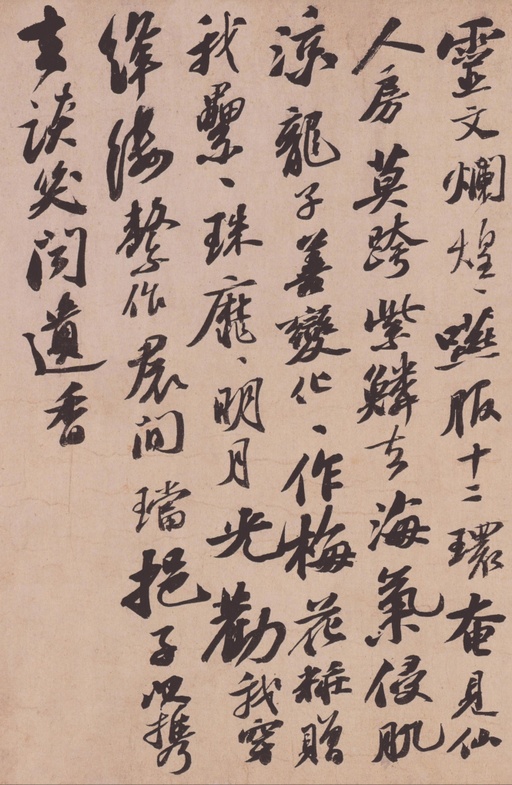 靈文爛煌〻嚥服十二環奄見仙
人房莫跨紫鱗去海氣侵肌
涼龍子善變化〻作梅花粧贈
我纍〻珠靡〻明月光勸我穿
絳縷繫作裠間璫挹子以攜
去談笑聞遺香